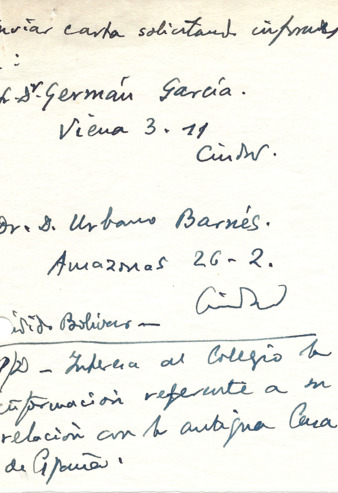 enviar carta solicitando informes
:
Dr. Germán García.
Viena 3-11
Ciudad.
Dr. D. Urbano Barnés.
Amazonas 26-2.
Ciudad
Bolívar—
P/D — Interesa al Colegio la
información referente a su
relación con la antigua Casa
de España.